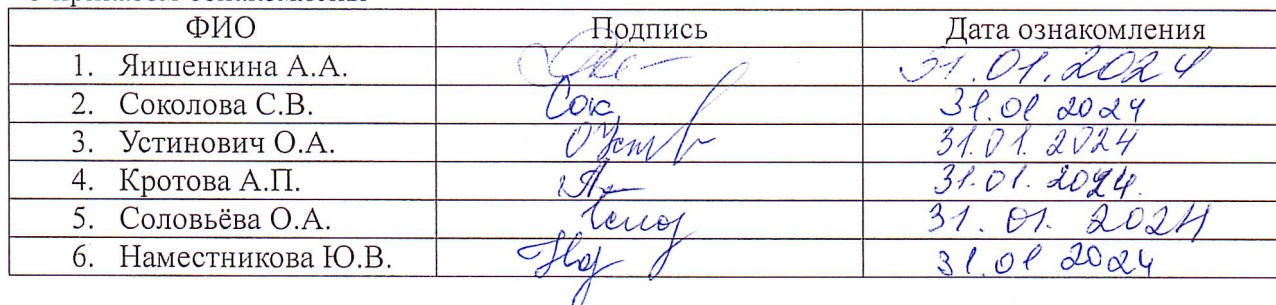 ФИО Подпись Дата ознакомления
1. Яишенкина А.А. 31.01.2024
2. Соколова С.В. Сок 31.01 2024
3. Устинович О.А. ОУст 31.01.2024
4. Кротова А.П. 31.01.2024.
5. Соловьёва О.А. 31.01.2024
6. Наместникова Ю.В. 31.01 2024